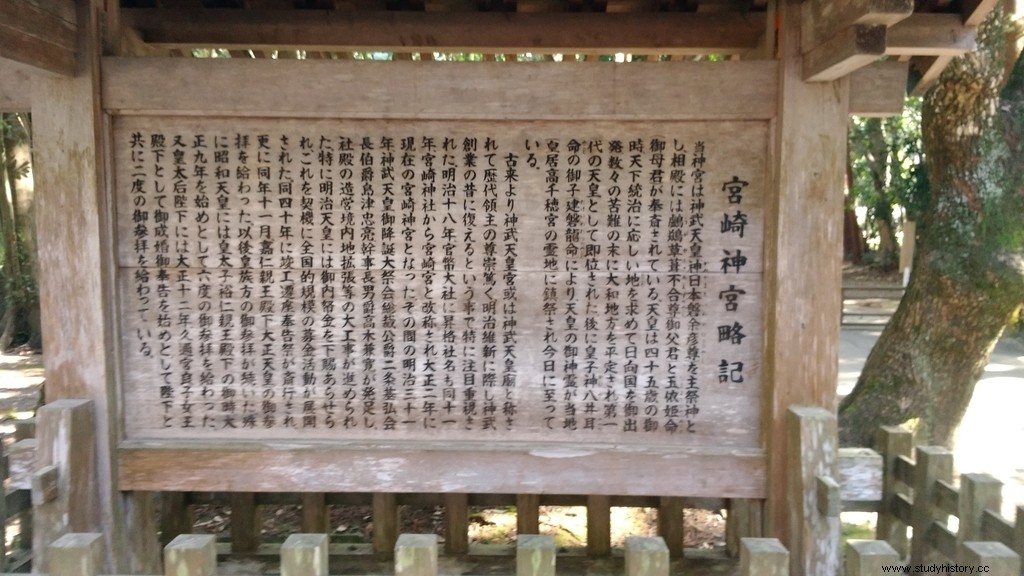 宮崎神宮略記
当神宮は神武天皇神日本磐余彦尊を主祭神と
し相殿には鸕鷀草葺不合尊御父君と玉依姫命
御母君が奉斎されている天皇は四十五歳の御
時天下統治に応しい地を求めて日向国を御出
発数々の苦難の末に大和地方を平定され第一
代の天皇として即位された後に皇子神八井耳
命の御子建磐龍命により天皇の御神霊が当地
皇居高千穂宮の霊地に鎮祭され今日に至って
いる。
古来より神武天皇宮或は神武天皇廟と称さ
れて歴代領主の尊崇篤く明治維新に際し神武
創業の昔に復えるという事で特に注目重視さ
れた明治十八年官幣大社に昇格社名も同十一
年宮崎神社から宮崎宮と改称され大正二年に
現在の宮崎神宮となったその間の明治三十一
年神武天皇御降誕大祭会総裁公爵二条基弘会
長伯爵島津忠亮幹事長男爵高木兼寛が発足し
社殿の造営境内地拡張等の大工事が進められ
た特に明治天皇には御内帑金を下賜あらせら
れこれを契機に全国的規模の募金活動が展開
された同四十年に竣工遷座奉告祭が斎行され
更に同年十一月嘉仁親王殿下大正天皇の御参
拝を給わった以後皇族方の御参拝が続いた殊
に昭和天皇には皇太子裕仁親王殿下の御時大
正九年を始めとして六度の御参拝を給わった
又皇太后陛下には大正十二年久邇宮良子女王
殿下として御成婚御奉告を始めとして陛下と
共に二度の御参拝を給わっている。
www.studyhistory.cc